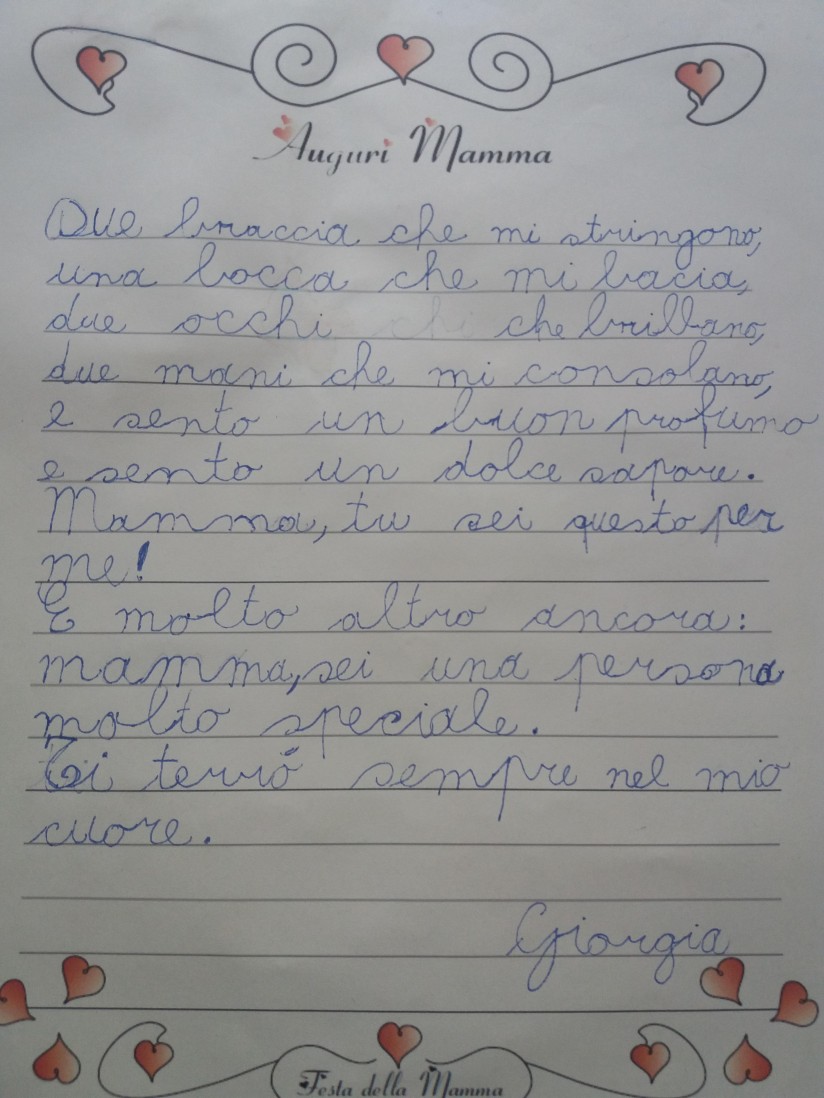 Auguri Mamma
Due braccia che mi stringono,
una bocca che mi bacia,
due occhi che brillano,
due mani che mi consolano,
e sento un buon profumo
e sento un dolce sapore.
Mamma, tu sei questo per
me!
E molto altro ancora:
mamma, sei una persona
molto speciale.
Ti terró sempre nel mio
cuore.
Giorgia
Festa della Mamma